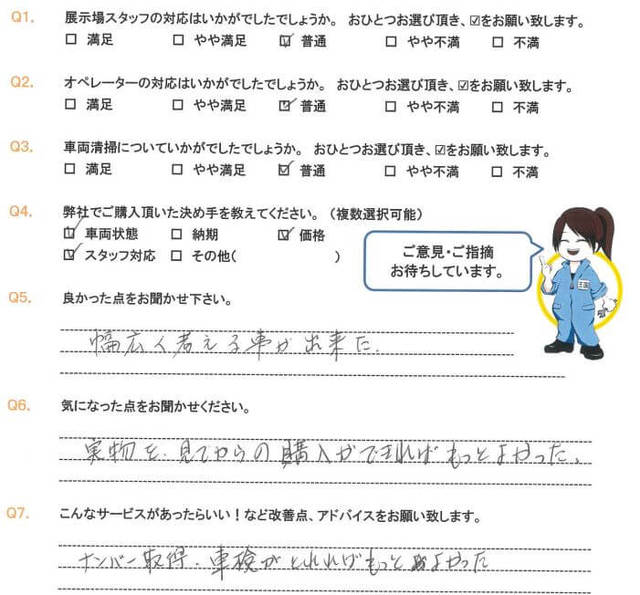 Q1. 展示場スタッフの対応はいかがでしたでしょうか。 おひとつお選び頂き、☑をお願い致します。
☐ 満足 ☐ やや満足 ☑ 普通 ☐ やや不満 ☐ 不満
Q2. オペレーターの対応はいかがでしたでしょうか。 おひとつお選び頂き、☑をお願い致します。
☐ 満足 ☐ やや満足 ☑ 普通 ☐ やや不満 ☐ 不満
Q3. 車両清掃についていかがでしたでしょうか。 おひとつお選び頂き、☑をお願い致します。
☐ 満足 ☐ やや満足 ☑ 普通 ☐ やや不満 ☐ 不満
Q4. 弊社でご購入頂いた決め手を教えてください。（複数選択可能）
☑ 車両状態 ☐ 納期 ☑ 価格
☑ スタッフ対応 ☐ その他( )
ご意見・ご指摘
お待ちしています。
Q5. 良かった点をお聞かせ下さい。
幅広く考える事が出来た.
Q6. 気になった点をお聞かせください。
実物を、見てからの購入ができればもっとよかった、
Q7. こんなサービスがあったらいい！など改善点、アドバイスをお願い致します。
ナンバー取得、車検がとれればもっとよかった